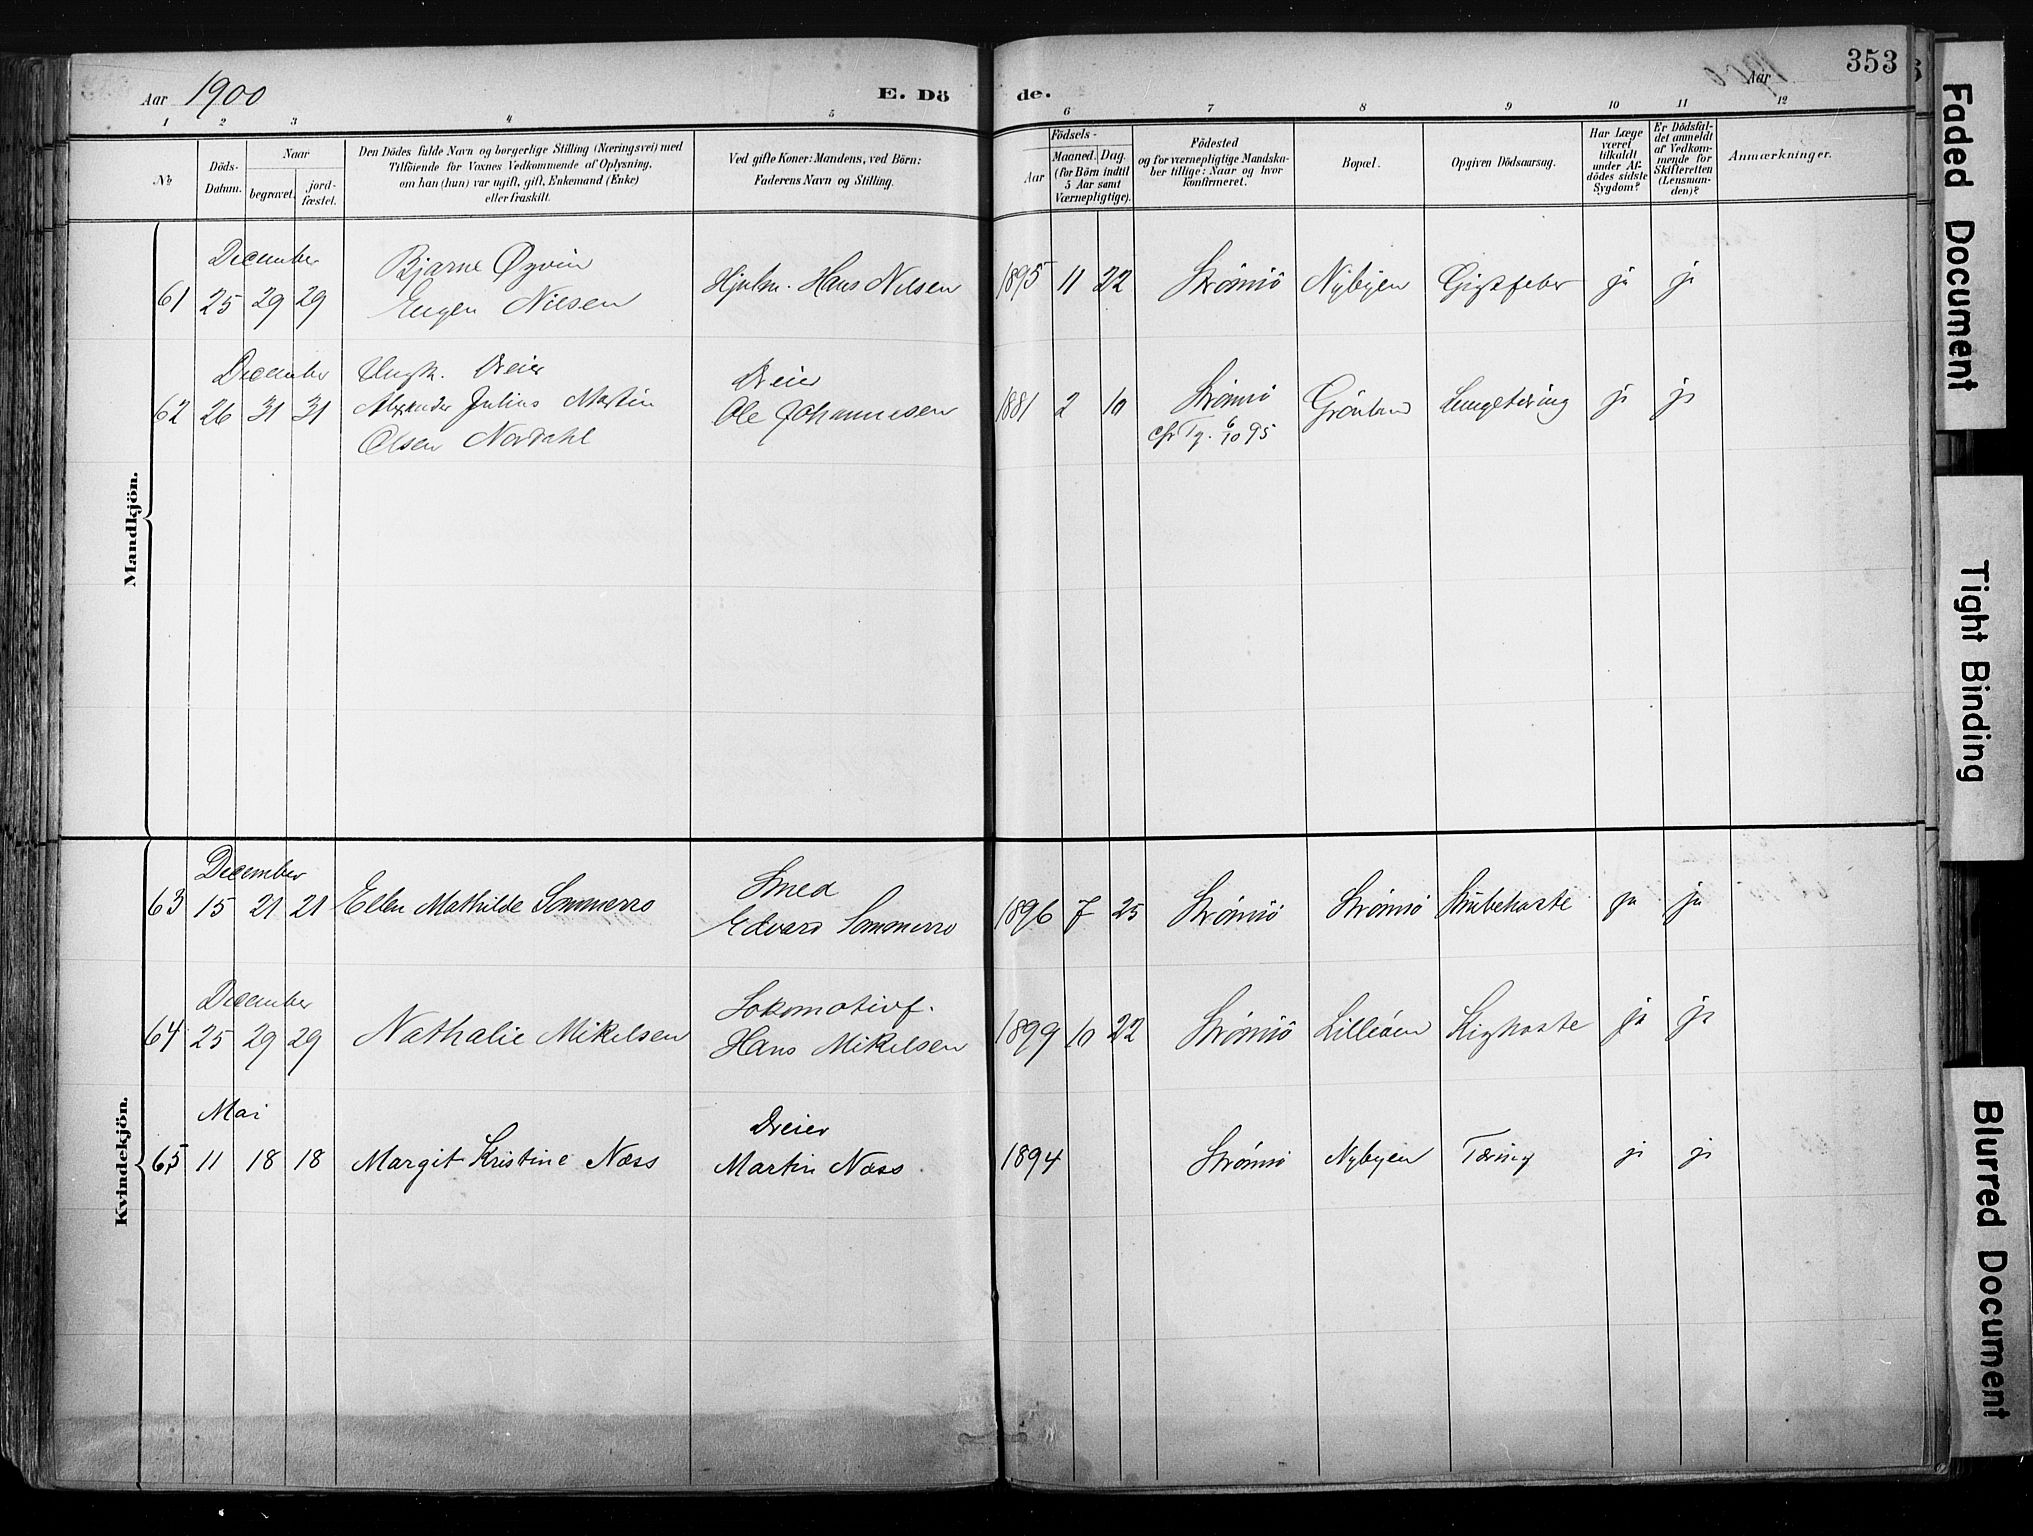 353
Aar 1900
E. Döde.
Aar 1900
1 2 3 4 5 6 7 8 9 10 11 12
No
Döds-Datum.
Naar
begravet.
jord-fæstet.
Den Dödes fulde Navn og borgerlige Stilling (Næringsvei) med
Tilföiende for Voxnes Vedkommende af Oplysning,
om han (hun) var ugift, gift, Enkemand (Enke)
eller fraskilt.
Ved gifte Koner: Mandens, ved Börn:
Faderens Navn og Stilling.
Födsels-
Aar
Maaned. Dag.
(for Börn indtil
5 Aar samt
Værnepligtige).
Födested
og for værnepligtige Mandska-
ber tillige: Naar og hvor
konfirmeret.
Bopæl.
Opgiven Dödsaarsag.
Har Læge
været
tilkaldt
under Af-
dödes sidste
Sygdom?
Er Dödsfal-
det anmeldt
af Vedkom-
mende for
Skifteretten
(Lensman-
den)?
Anmærkninger.
Mandkjön.
December Bjarne Øyvin
61 25 29 29 Eugen Nilsen Hjulm. Hans Nilsen 1895 11 22 Strømsö Nybyen Gigtfeber ja ja
December Ungk. Dreier Dreier
62 26 31 31 Alexander Julius Martin Ole Johannesen 1881 2 10 Strømsö Grönland Lungetæring ja ja
Olsen Nordahl cfr Tg. 6/10 95
Kvindekjön.
December Smed
63 15 21 21 Ellen Mathilde Sommerro Edvard Sommerro 1896 7 25 Strømsö Strømsö Strubehoste ja ja
December Lokomotivf.
64 25 29 29 Nathalie Mikelsen Hans Mikelsen 1899 10 22 Strømsö Lilleöen Kighoste ja ja
Mai Dreier
65 11 18 18 Margit Kristine Næss Martin Næss. 1894 Strømsö Nybyen Tæring ja ja
Faded Document
Tight Binding
Blurred Document